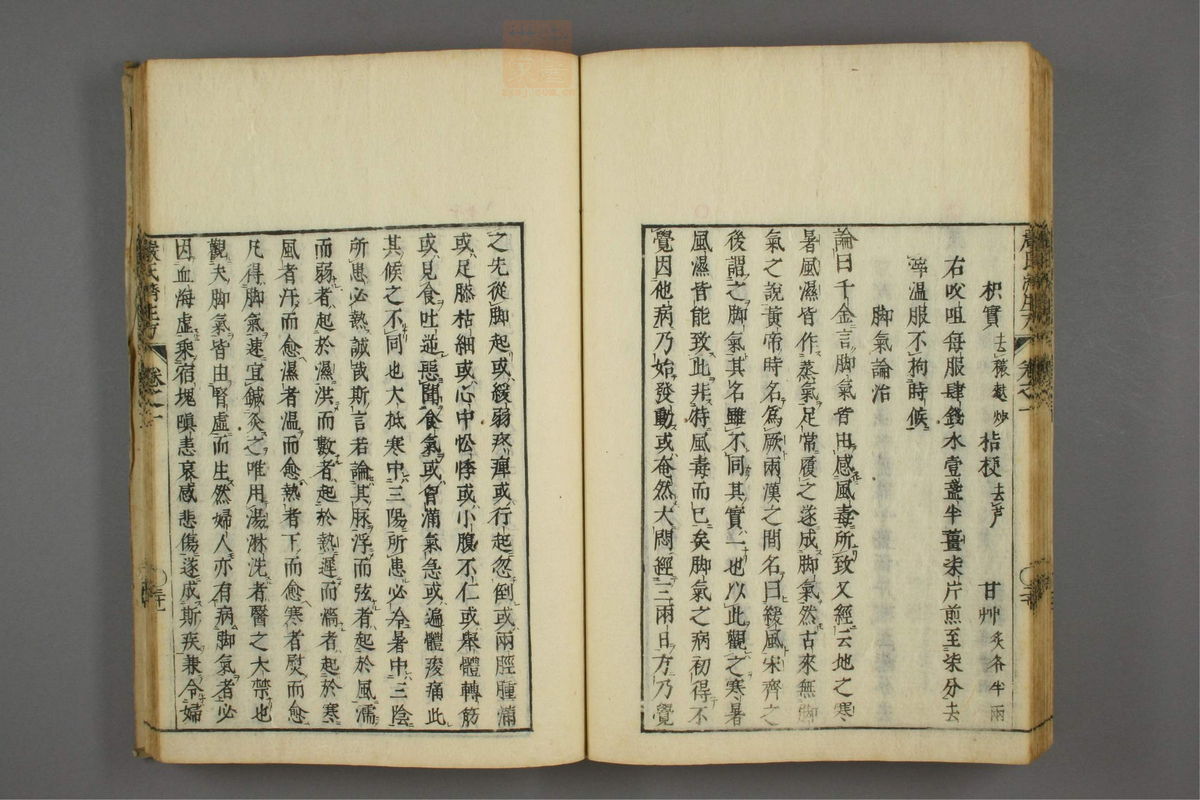 枳實去穰麩炒 桔梗去芦 甘艸炙各半兩
右㕮咀每服肆錢水壹盞半薑柒片煎至柒分去
滓温服不拘時候
脚氣論治
論曰千金言脚氣皆由感風毒所致又經云地之寒
暑風濕皆作蒸氣足常履之遂成脚氣然古來無脚
氣之說黃帝時名為厥兩漢之間名曰緩風宋齊之
後謂之脚氣其名雖不同其實一也以此觀之寒暑
風濕皆能致此非特風毒而已矣脚氣之病初得不
覺因他病乃始發動或奄然大悶經三兩日方乃覺
之先從脚起或緩弱疼痺或行起忽倒或兩脛腫滿
或足膝枯細或心中忪悸或小腹不仁或舉體轉筋
或見食吐逆惡聞食氣或胷滿氣急或遍體痠痛此
其候之不同也大抵寒中三陽所患必冷暑中三陰
所患必熱誠哉斯言若論其脉浮而弦者起於風濡
而弱者起於濕洪而數者起於熱遲而濇者起於寒
風者汗而愈濕者温而愈熱者下而愈寒者熨而愈
凡得脚氣速宜鍼灸之唯用湯淋洗者醫之大禁也
觀夫脚氣皆由腎虛而生然婦人亦有病脚氣者必
因血海虛乘宿塊嗔恚哀感悲傷遂成斯疾兼令婦
嚴氏濟生方 卷之一